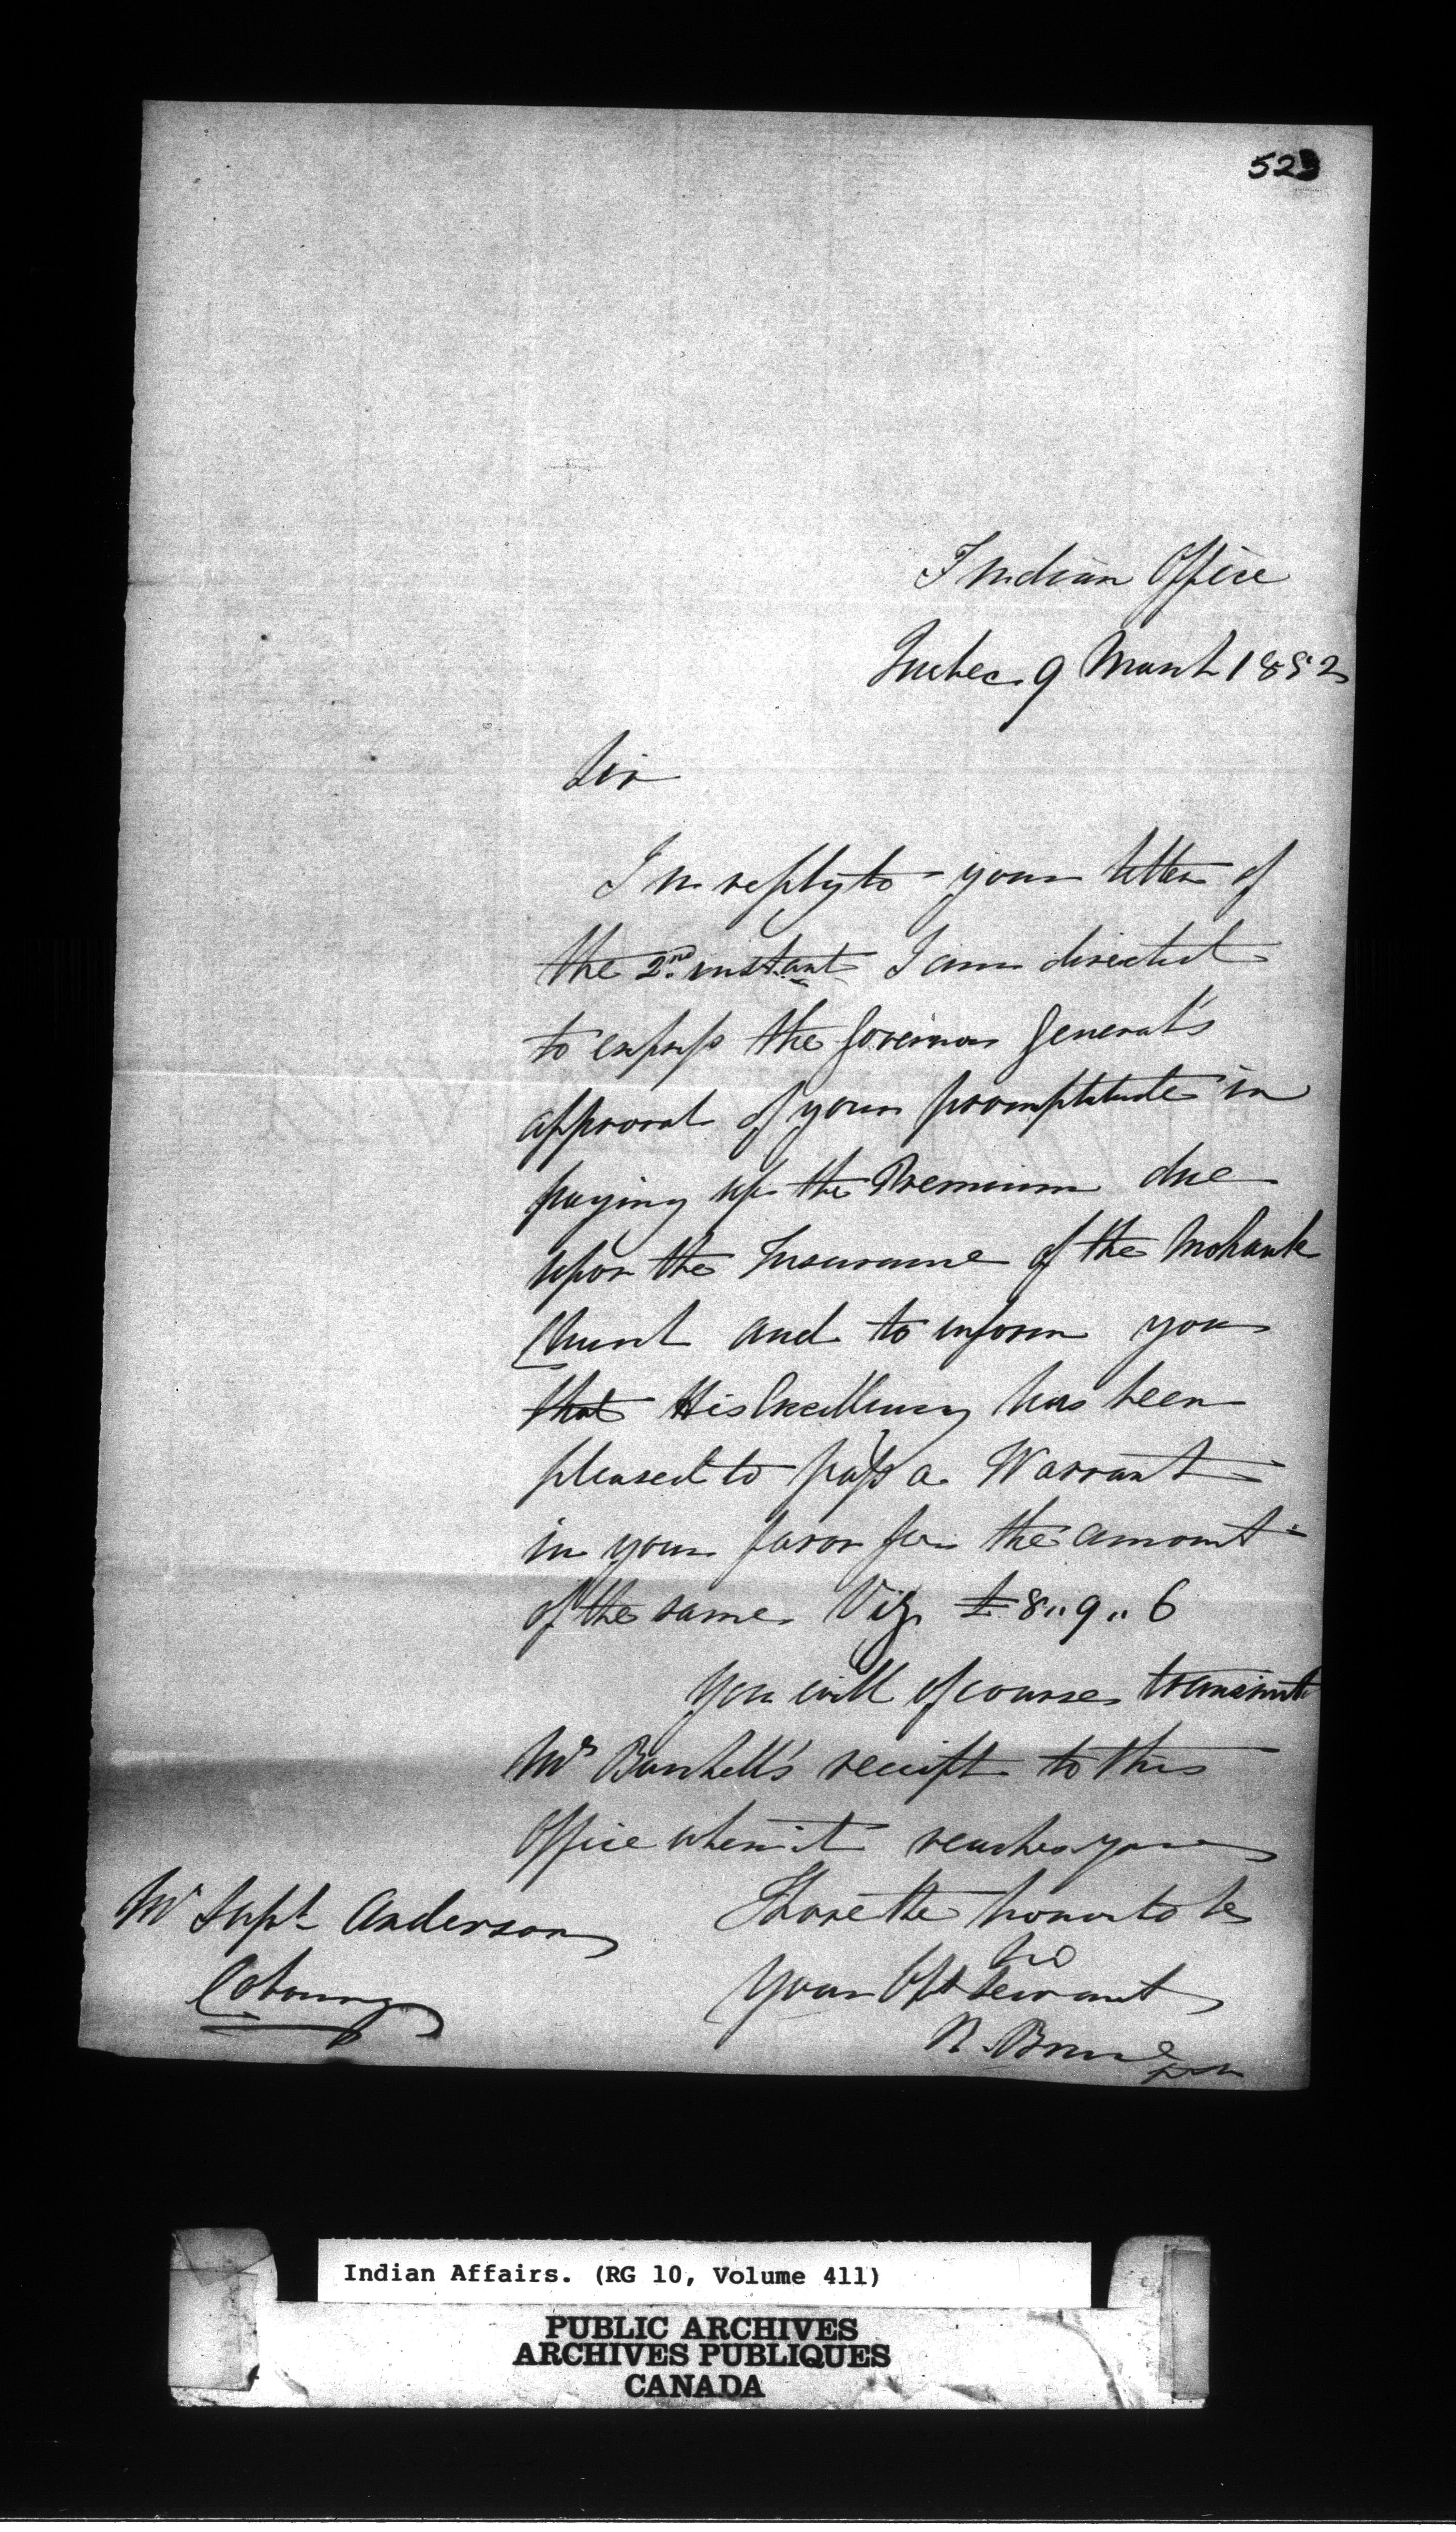 523
Indian Office
Quebec 9 March 1852
Sir
In reply to your letter of
the 2nd instant I am directed
to express the Governor General's
approval of your promptitude in
paying up the Premium due
upon the Insurance of the Mohawk
Church and to inform you
that His Excellency has been
pleased to pass a Warrant
in your favor for the amount
of the same Viz £8,,9,,6
You will of course transmit
Mr receipt to this
Office when it reaches you
I have the honor to be
Your Obt Servant
R. Bruce
Mr Supt Anderson
Cobourg
Indian Affairs. (RG 10, Volume 411)
PUBLIC ARCHIVES
ARCHIVES PUBLIQUES
CANADA